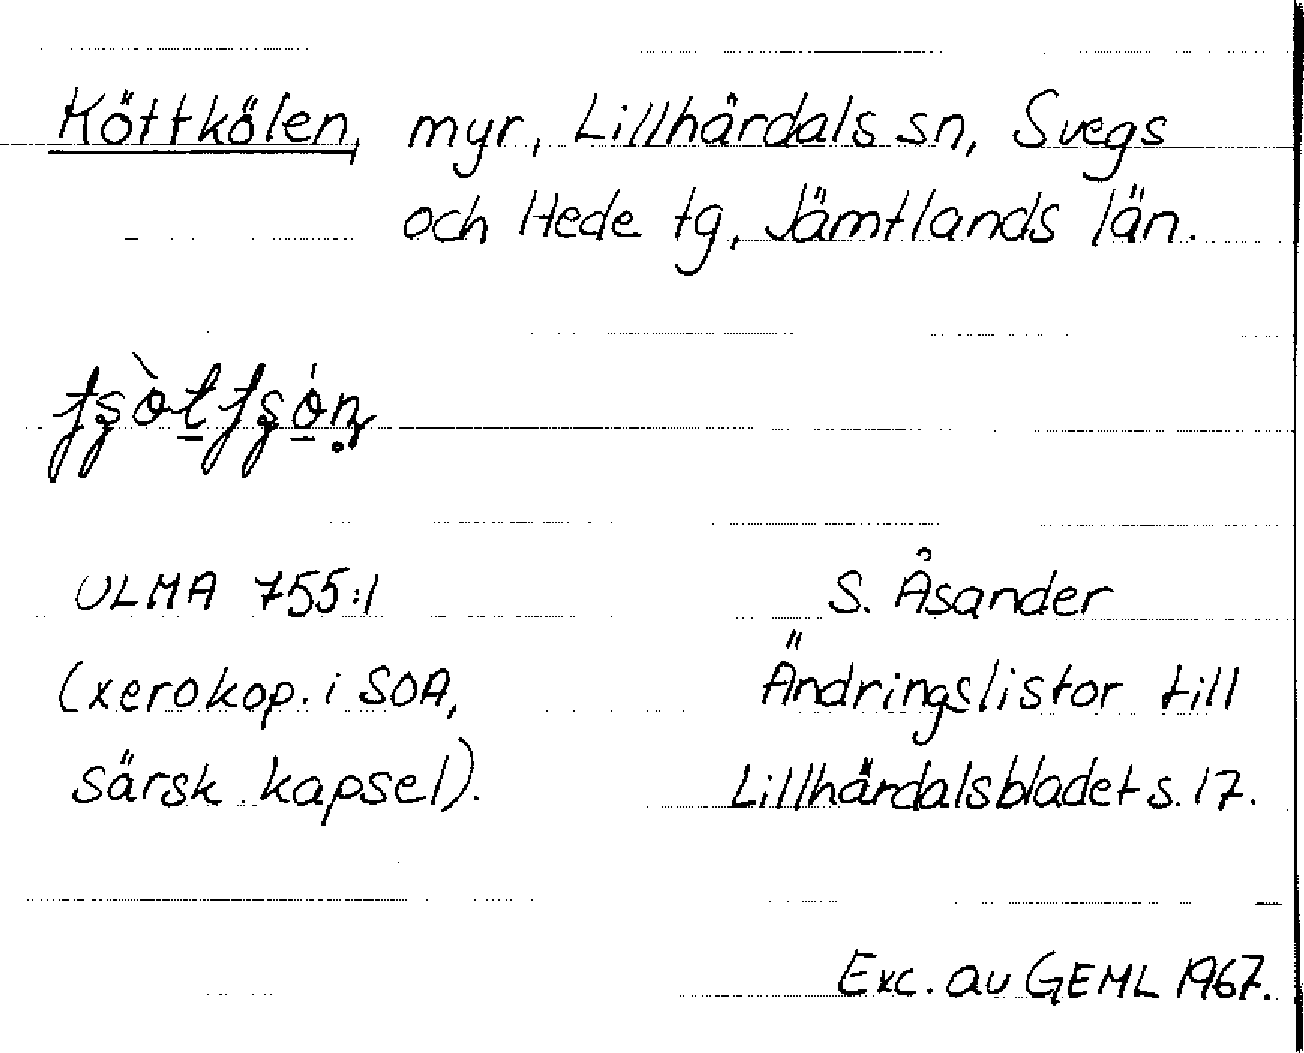 Köttkölen, myr, Lillhärdals sn, Svegs
och Hede tg, Jämtlands län.
ULMA 755:1
(xerokop. i SOA,
särsk. kapsel).
S. Åsander
Ändringslistor till
Lillhärdalsbladet s. 17.
Exc. av GEML 1967.